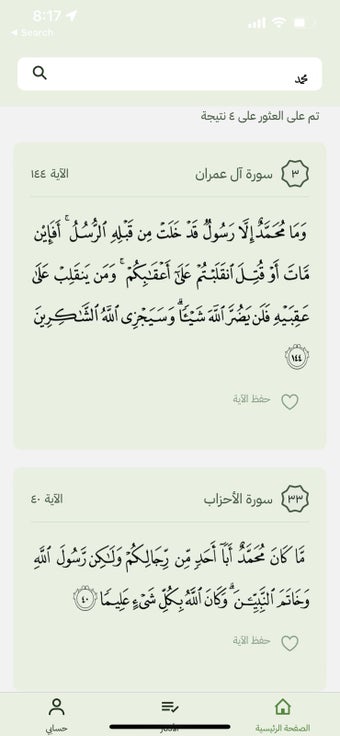 8:17
Search
محمد
تم على العثور على ٤ نتيجة
٣ سورة آل عمران الآية ١٤٤
وَمَا مُحَمَّدٌ إِلَّا رَسُولٌ قَدْ خَلَتْ مِن قَبْلِهِ ٱلرُّسُلُ ۚ أَفَإِي۟ن
مَّاتَ أَوْ قُتِلَ ٱنقَلَبْتُمْ عَلَىٰٓ أَعْقَـٰبِكُمْ ۚ وَمَن يَنقَلِبْ عَلَىٰ
عَقِبَيْهِ فَلَن يَضُرَّ ٱللَّهَ شَيْـًٔا ۗ وَسَيَجْزِى ٱللَّهُ ٱلشَّـٰكِرِينَ
١٤٤
حفظ الآية
٣٣ سورة الأحزاب الآية ٤٠
مَّا كَانَ مُحَمَّدٌ أَبَآ أَحَدٍ مِّن رِّجَالِكُمْ وَلَـٰكِن رَّسُولَ ٱللَّهِ
وَخَاتَمَ ٱلنَّبِيِّـۧنَ ۗ وَكَانَ ٱللَّهُ بِكُلِّ شَىْءٍ عَلِيمًا ٤٠
حفظ الآية
الصفحة الرئيسية حسابي